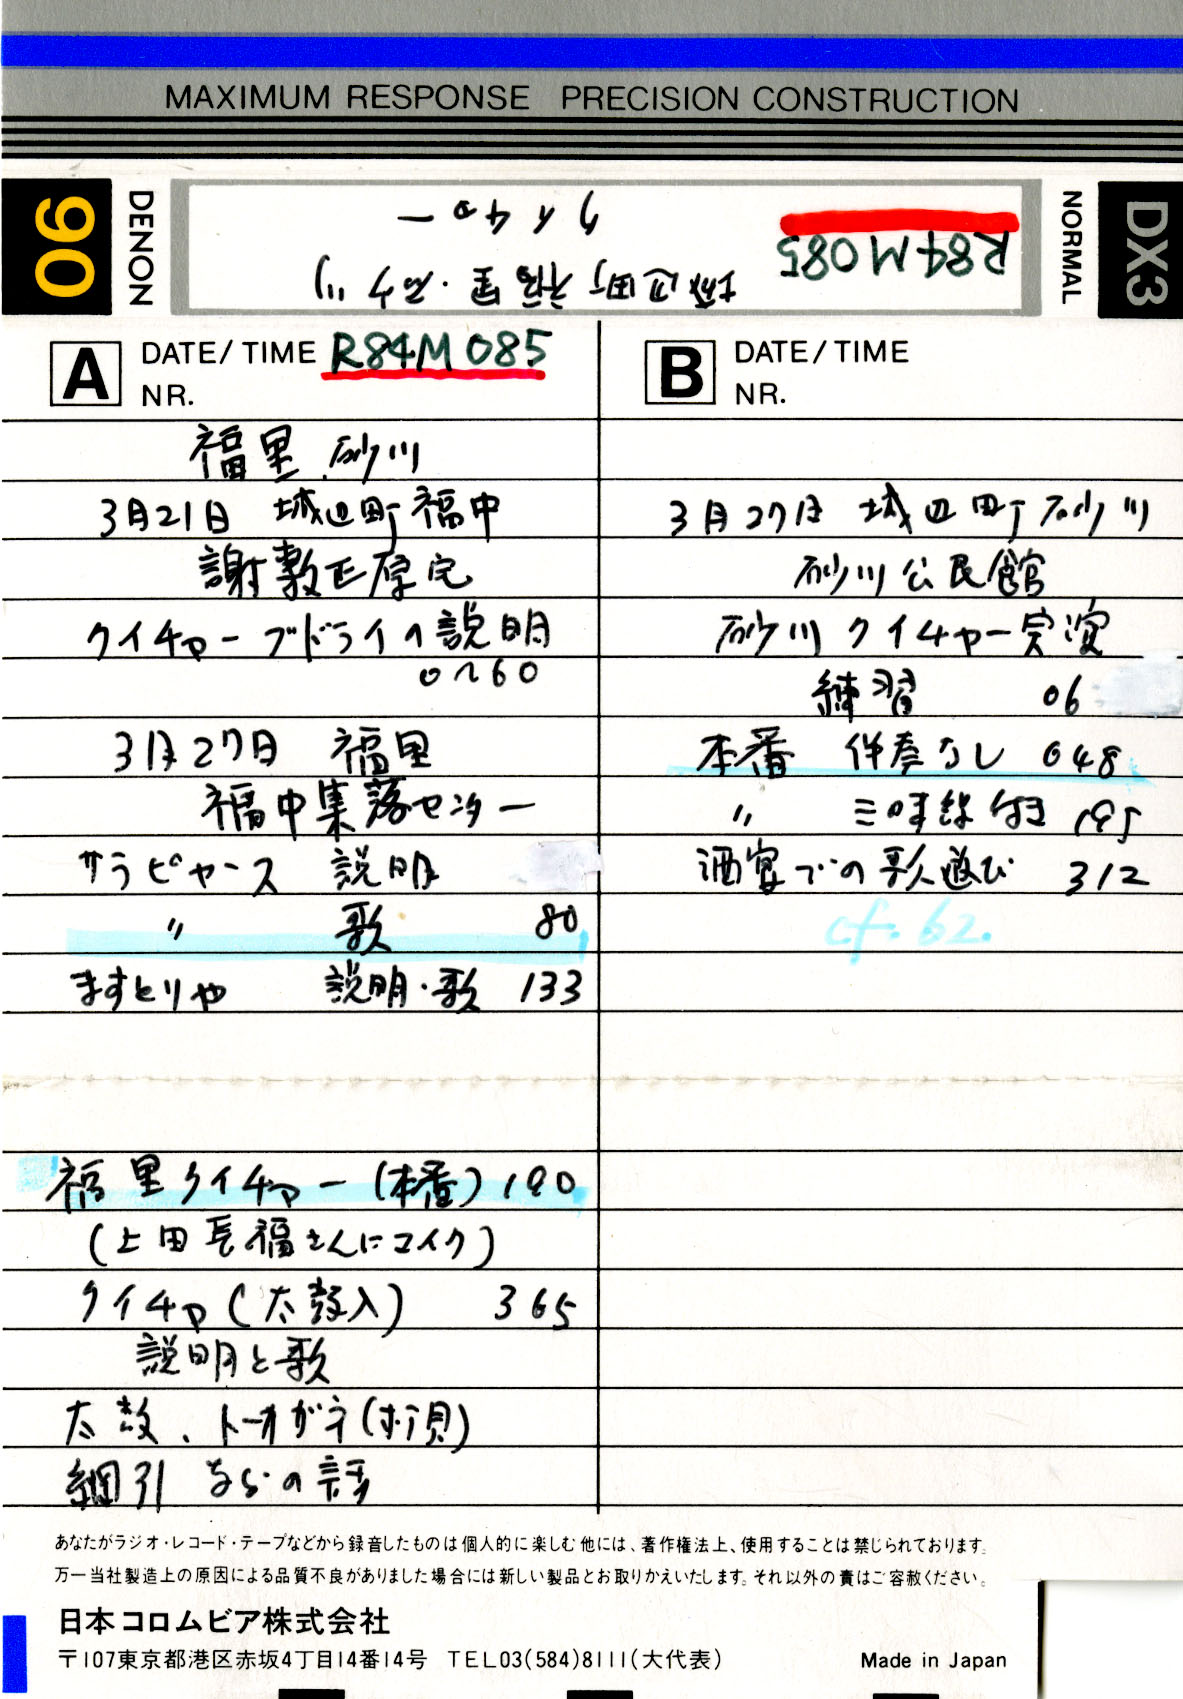 MAXIMUM RESPONSE PRECISION CONSTRUCTION
90
DENON
R84M085
城辺町 福里・砂川
クイチャー
NORMAL
DX3
A DATE/TIME R84M085
NR.
福里、砂川
3月21日 城辺町福中
謝敷正厚宅
クイチャーブドライの説明
0〜60
3月27日 福里
福中集落センター
サラピャース 説明
〃 歌 80
ますとりや 説明・歌 133
福里クイチャー(本番)190
(上田長福さんにマイク)
クイチャ(太鼓入) 365
説明と歌
太鼓、トーガニ
綱引 などの話
B DATE/TIME
NR.
3月27日 城辺町砂川
砂川公民館
砂川クイチャー実演
練習 06
本番 伴奏なし 048
〃 三味線付き 195
酒宴での歌遊び 312
cf. 62.
あなたがラジオ・レコード・テープなどから録音したものは個人的に楽しむ他には、著作権法上、使用することは禁じられております。
万一当社製造上の原因による品質不良がありました場合には新しい製品とお取りかえいたします。それ以外の責はご容赦ください。
日本コロムビア株式会社
〒107東京都港区赤坂4丁目14番14号 TEL03(584)8111(大代表)
Made in Japan